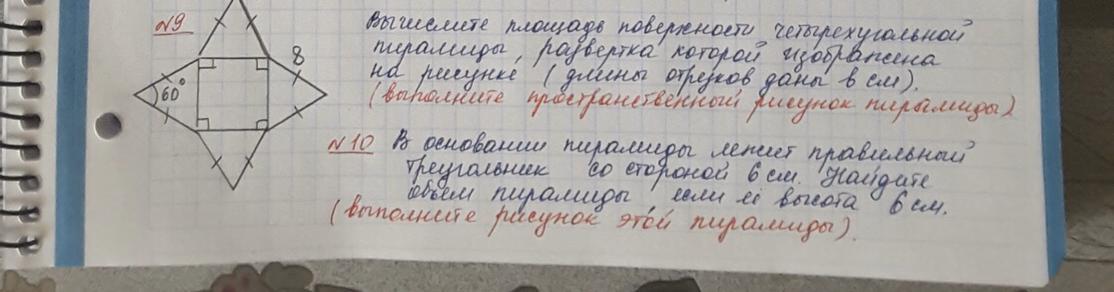 №9
8
60°
Вычислите площадь поверхности четырехугольной
пирамиды, развертка которой изображена
на рисунке (длины отрезков даны в см).
(выполните пространственный рисунок пирамиды)
№10 В основании пирамиды лежит правильный
треугольник со стороной 6 см. Найдите
объем пирамиды, если её высота 6 см.
(выполните рисунок этой пирамиды).